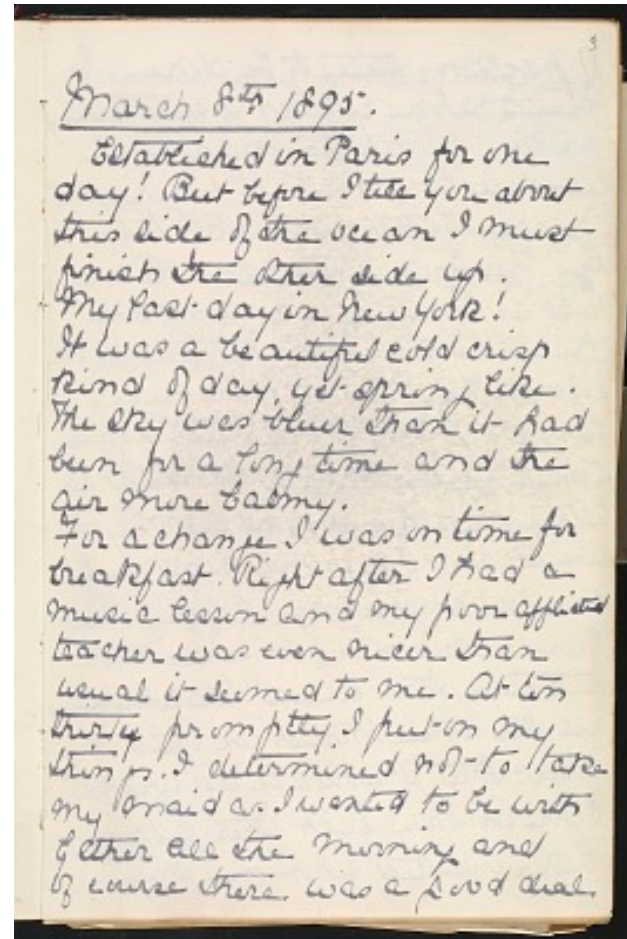 3
March 8th 1895.
Established in Paris for one
day! But before I tell you about
this side of the ocean I must
finish the other side up.
My last day in New York!
It was a beautiful cold crisp
kind of day, yet spring like.
The sky was bluer than it had
been for a long time and the
air more balmy.
For a change I was on time for
breakfast. Right after I had a
music lesson and my poor afflicted
teacher was even nicer than
usual it seemed to me. At ten
thirty promptly I put on my
things. I determined not to take
my maid as I wanted to be with
Esther all the morning and
of course there was a good deal